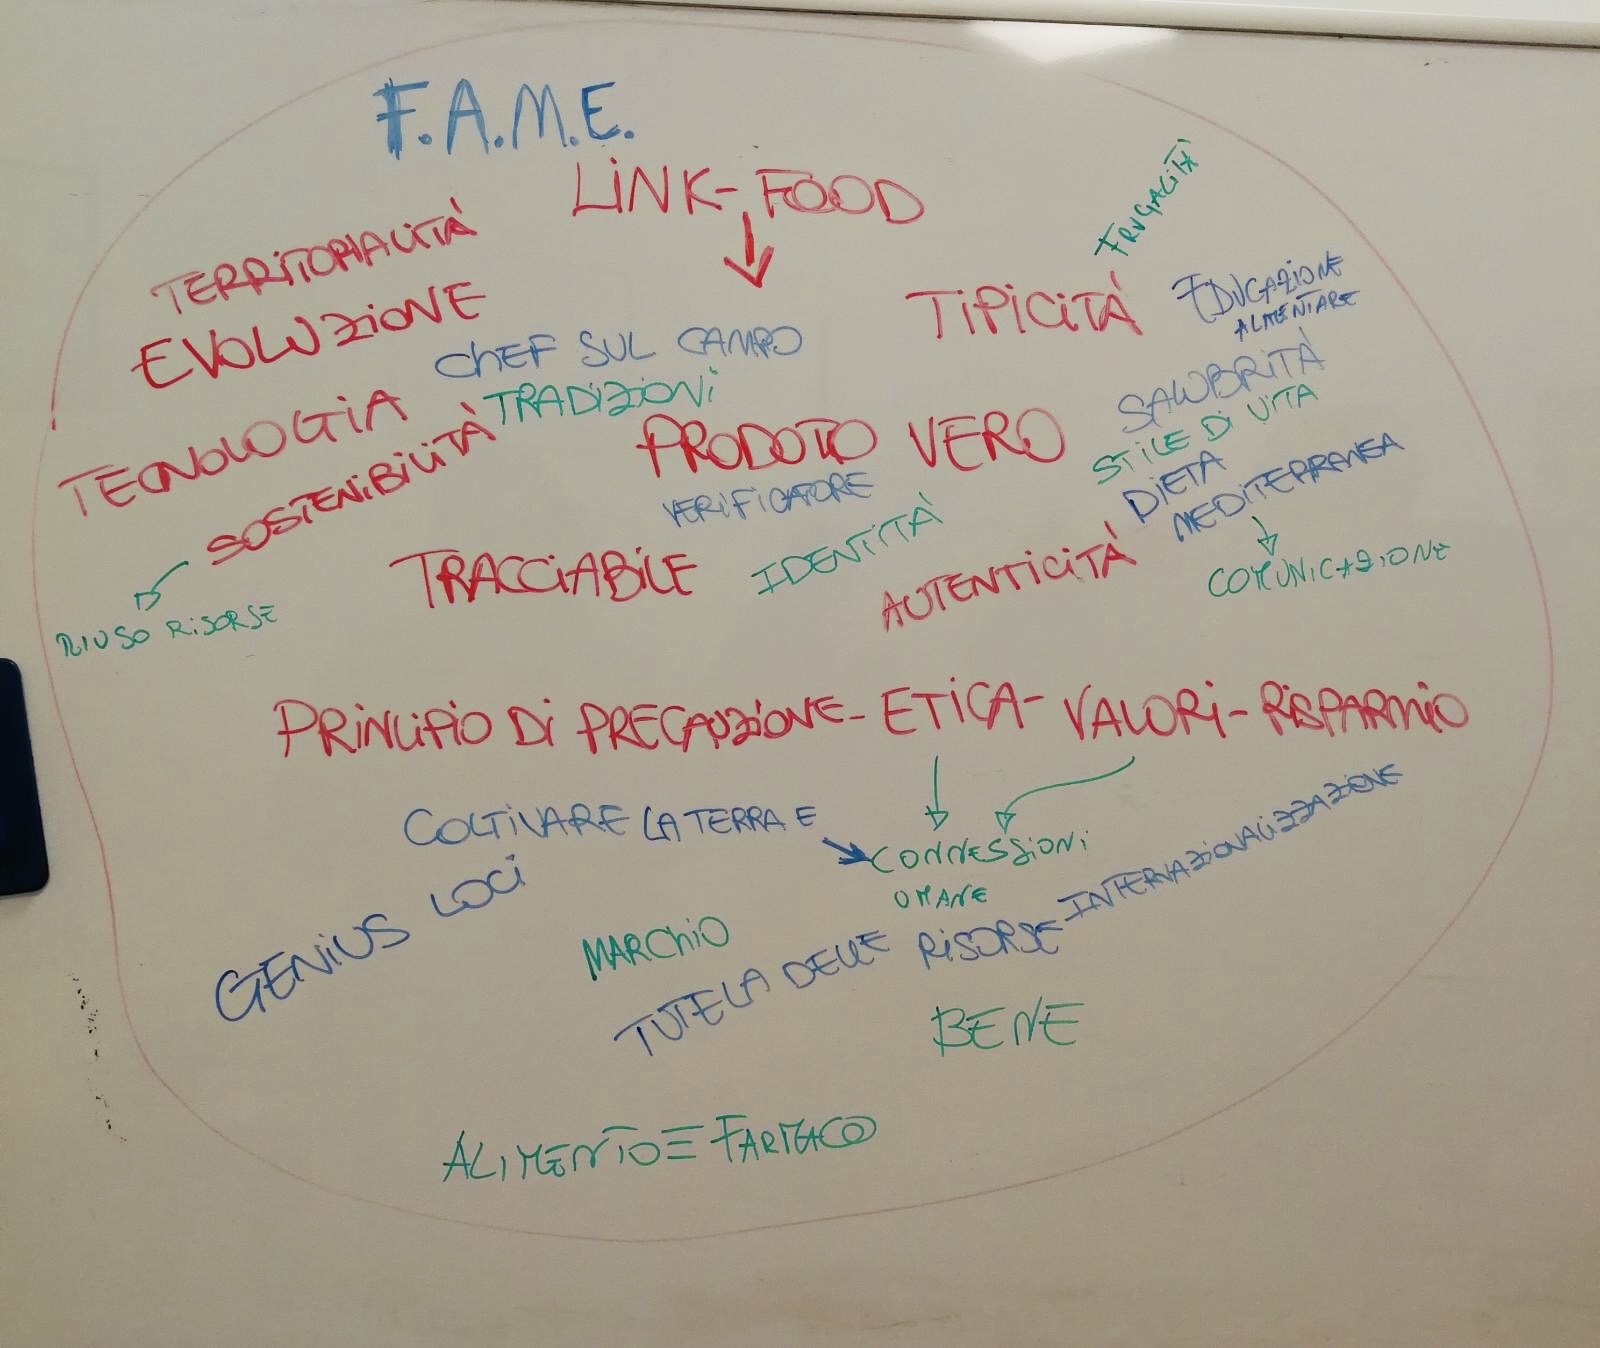 F.A.M.E.
LINK-FOOD
FRUGALITÀ
TERRITORIALITÀ
EVOLUZIONE
TIPICITÀ
EDUCAZIONE
ALIMENTARE
CHEF SUL CAMPO
SALUBRITÀ
TECNOLOGIA
TRADIZIONI
STILE DI VITA
SOSTENIBILITÀ
PRODOTO VERO
DIETA
MEDITERRANEA
VERIFICATORE
TRACCIABILE
IDENTITÀ
AUTENTICITÀ
COMUNICAZIONE
RIUSO RISORSE
PRINCIPIO DI PRECAUZIONE - ETICA - VALORI - RISPARMIO
COLTIVARE LA TERRA E
CONNESSIONI
UMANE
GENIUS LOCI
MARCHIO
TUTELA DELLE RISORSE
INTERNAZIONALIZZAZIONE
BENE
ALIMENTO = FARMACO